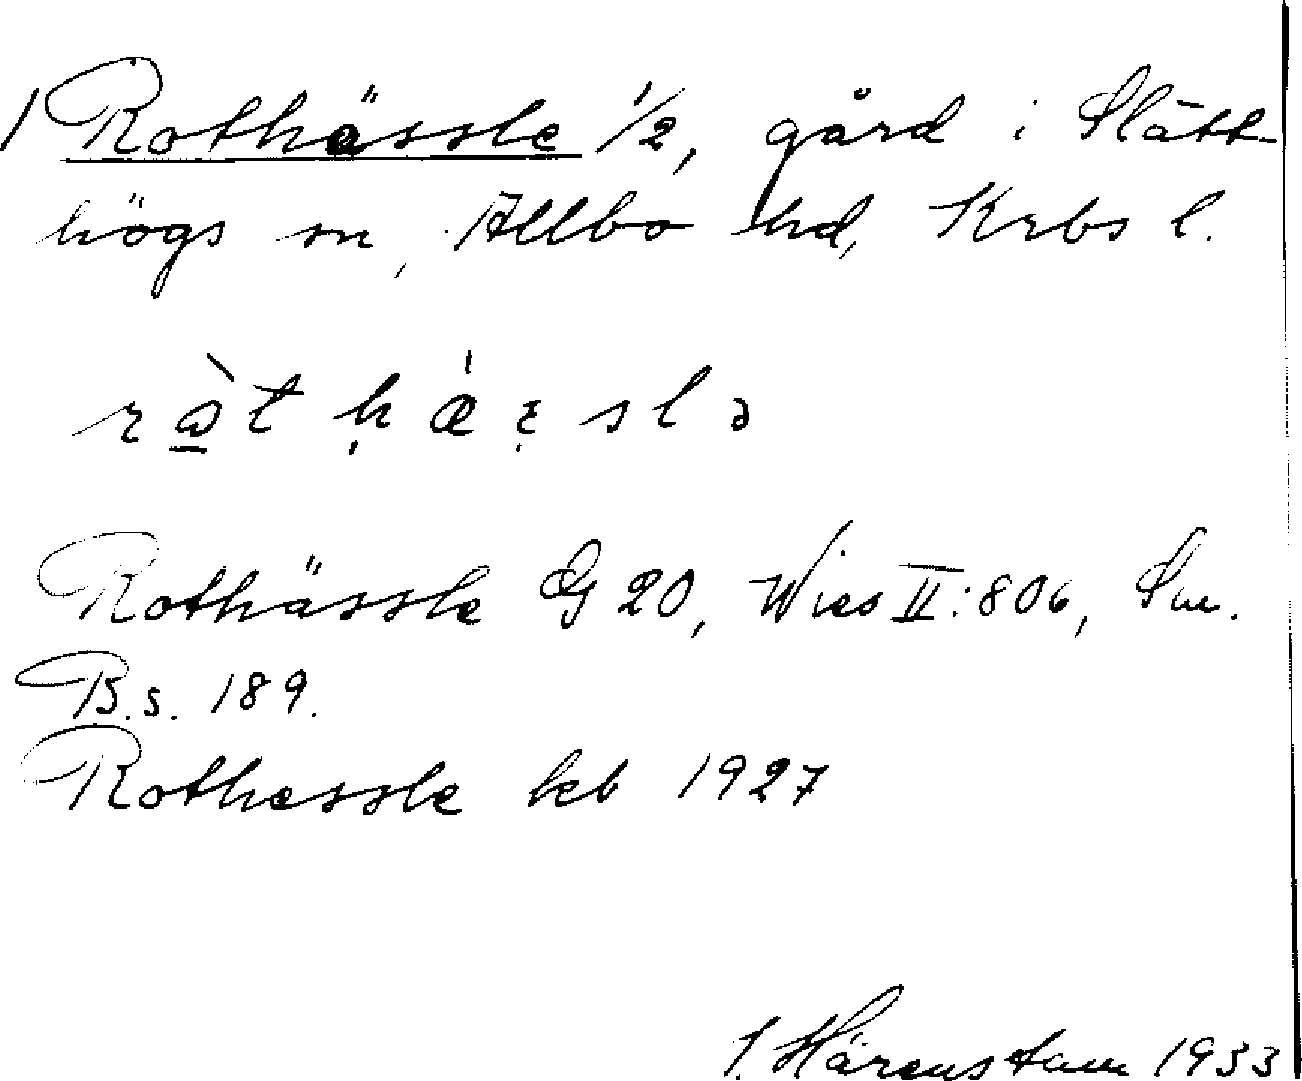 1 Rothässle 1/2, gård i Slätt-
högs sn, Allbo hd, Krbs l.
Rothässle G 20, Wies II:806, Sw.
B.s. 189.
Rothessle keb 1927
J. Härenstam 1933